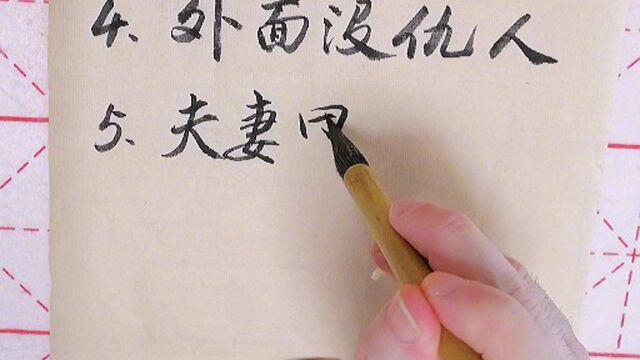 4. 外面没仇人
5. 夫妻